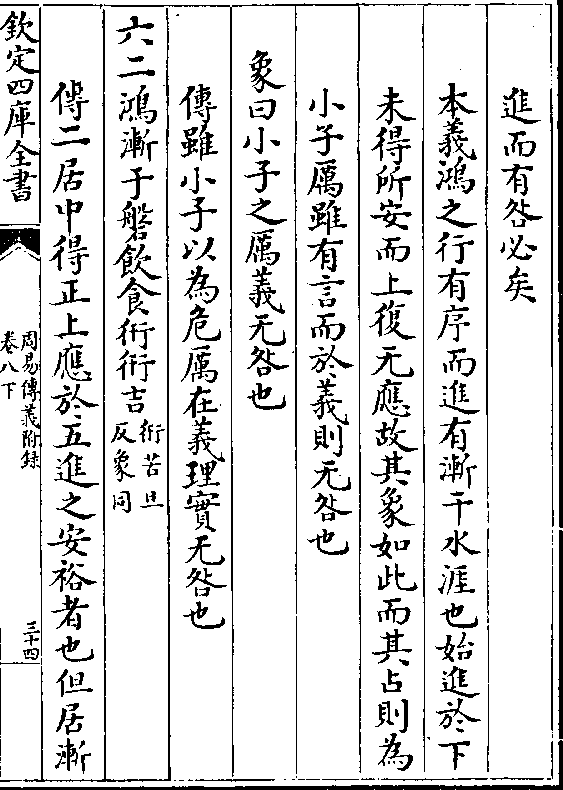 進而有咎必矣
本義鴻之行有序而進有漸干水涯也始進於下
未得所安而上復无應故其象如此而其占則為
小子厲雖有言而於義則无咎也
象曰小子之厲義无咎也
傳雖小子以為危厲在義理實无咎也
六二鴻漸于磐飲食衎衎吉衎苦旦
反象同
傳二居中得正上應於五進之安裕者也但居漸
欽定四庫全書
周易傳義附錄
卷八下
三十四